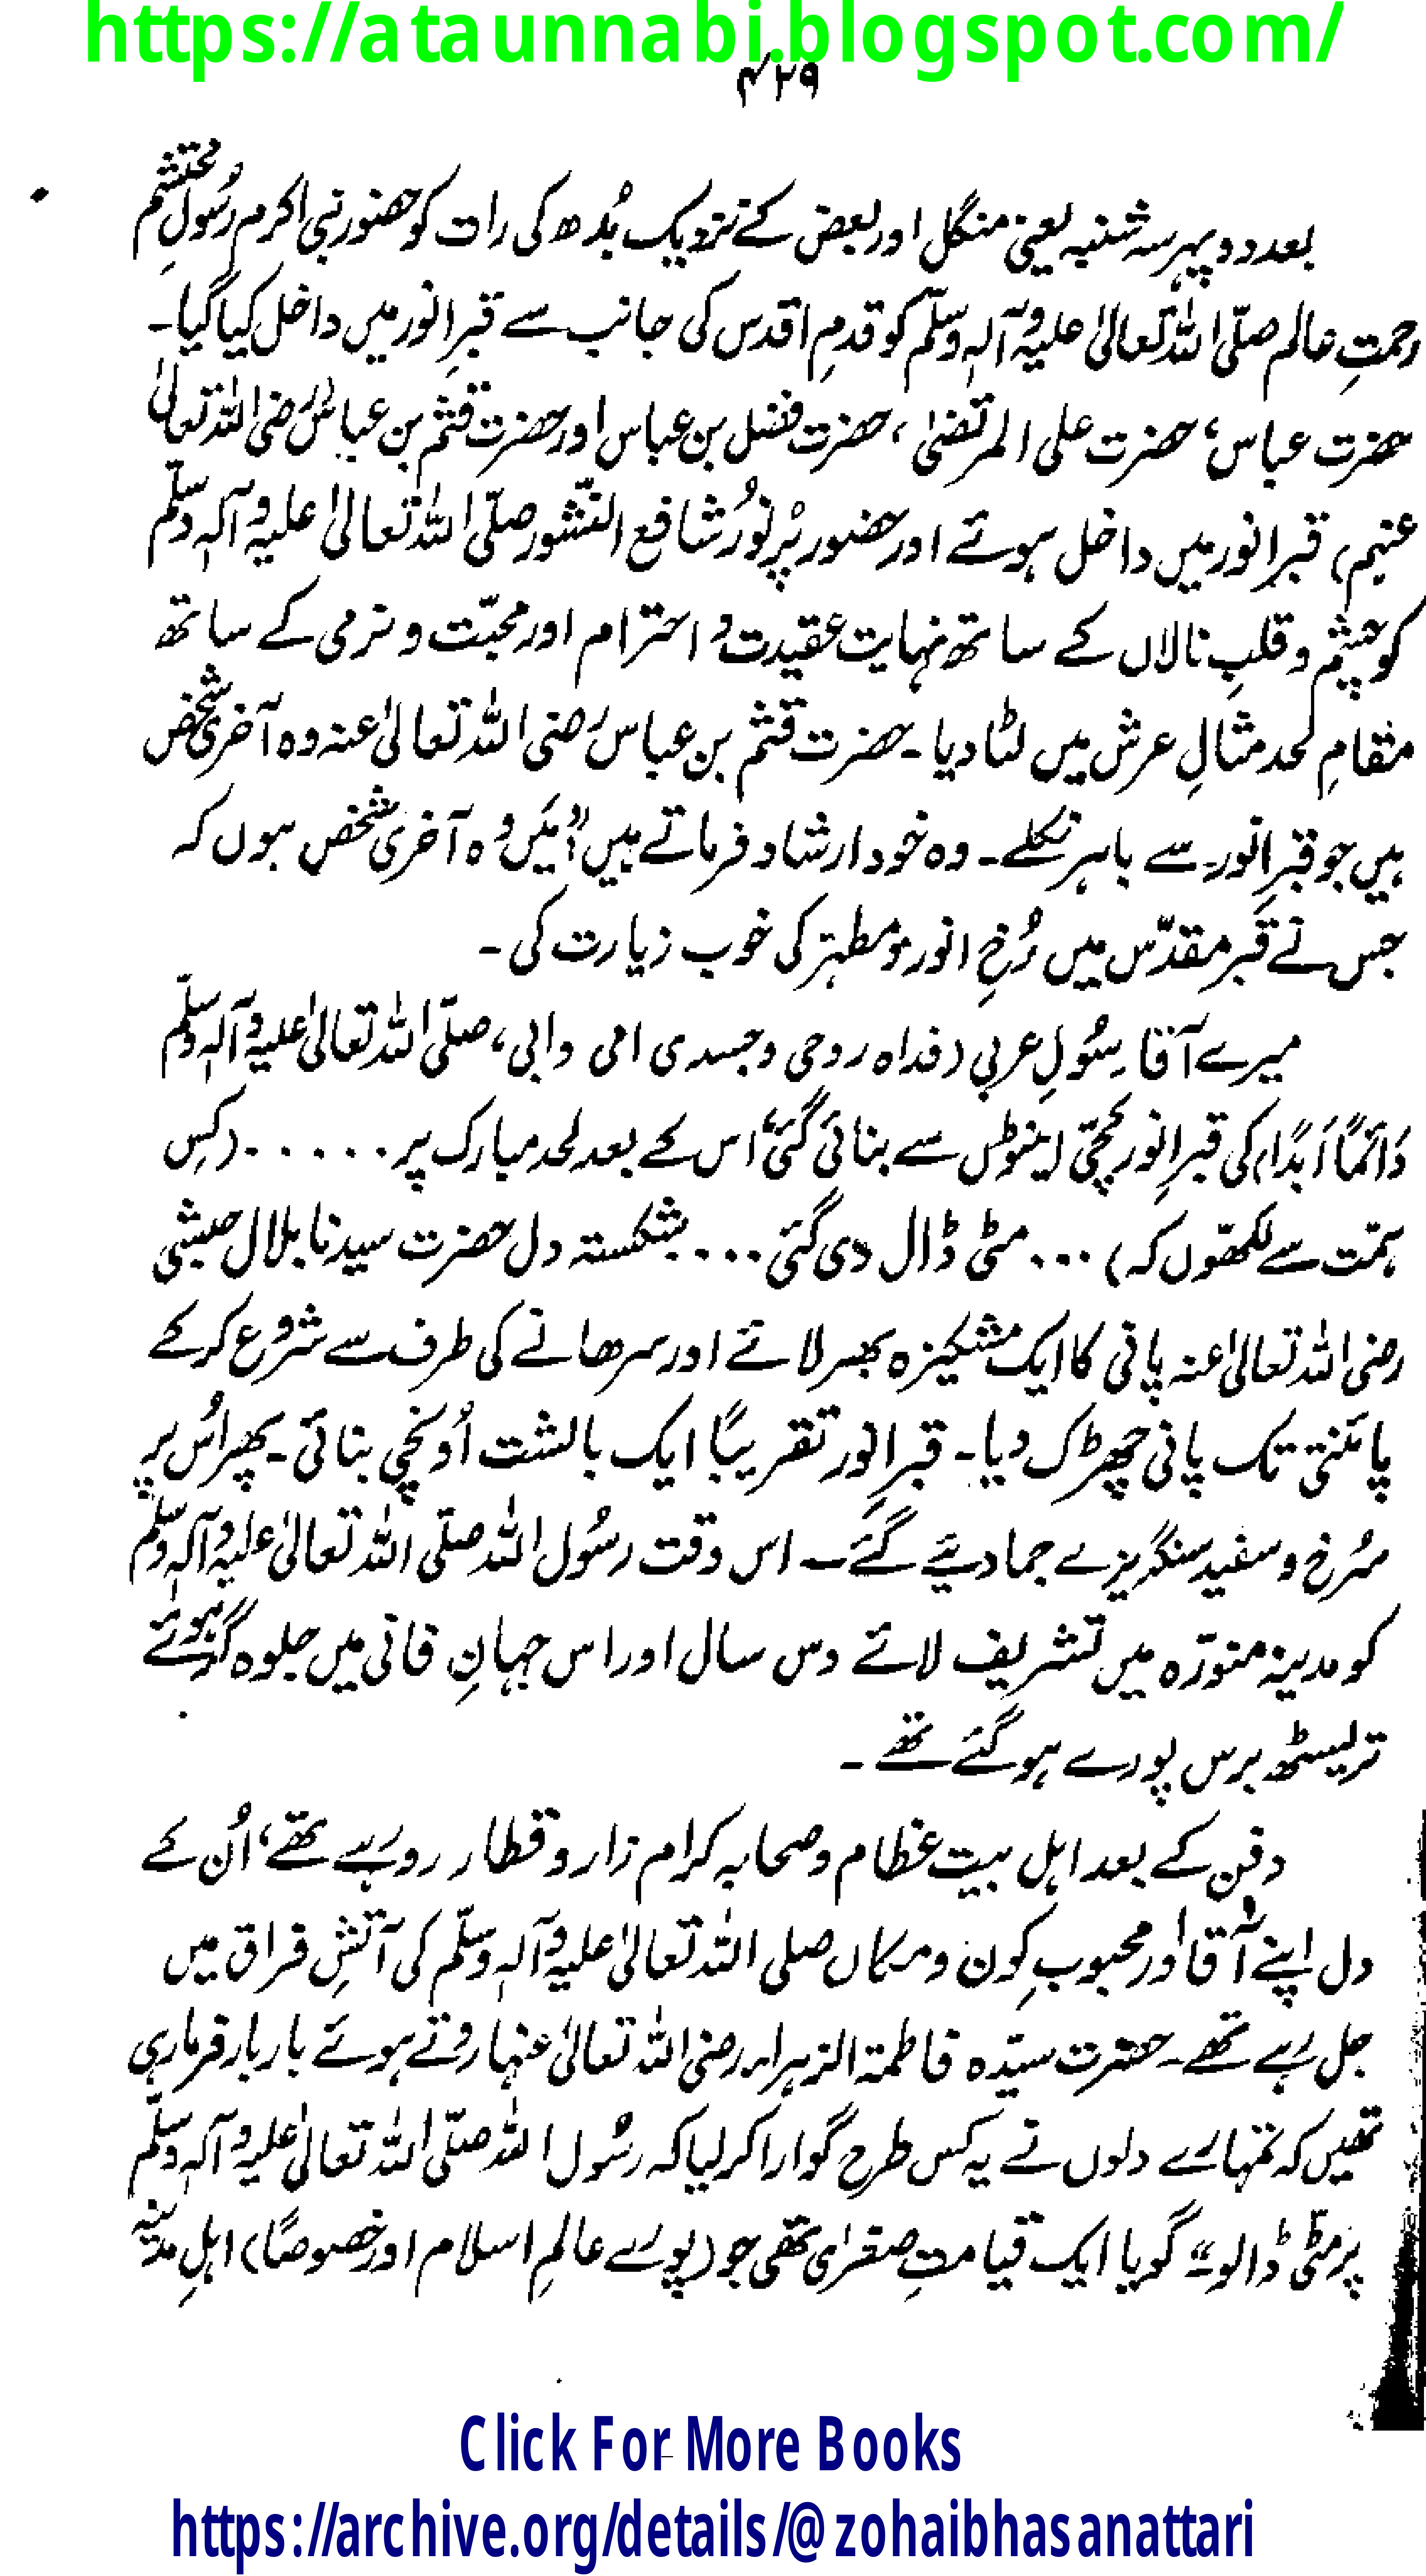 https://ataunnabi.blogspot.com/
۴۲۹
بعد دوپہر سہ شنبہ یعنی منگل اور بعض کے نزدیک بُدھ کی رات کو حضور نبی اکرم رسُولِ محتشم
رحمتِ عالم صلّی اللہ تعالیٰ علیہ وآلہٖ وسلّم کو قدمِ اقدس کی جانب سے قبرِ انور میں داخل کیا گیا۔
حضرت عباس، حضرت علی المرتضیٰ، حضرت فضل بن عباس اور حضرت قثم بن عباس (رضی اللہ تعالیٰ
عنہم) قبرِ انور میں داخل ہوئے اور حضور پُر نُور شافع النّشور صلّی اللہ تعالیٰ علیہ وآلہٖ وسلّم
کو چشم و قلبِ نالاں کے ساتھ نہایت عقیدت و احترام اور محبّت و نرمی کے ساتھ
مقامِ لحد مثالِ عرش میں لٹا دیا۔ حضرت قثم بن عباس رضی اللہ تعالیٰ عنہ وہ آخری شخص
ہیں جو قبرِ انور سے باہر نکلے۔ وہ خود ارشاد فرماتے ہیں "میَں وہ آخری شخص ہوں کہ
جس نے قبر مقدّس میں رُخِ انور و مطہّر کی خوب زیارت کی۔
میرے آقا رسُولِ عربی (فداہ روحی وجسدی امی وابی، صلّی اللہ تعالیٰ علیہ وآلہٖ وسلّم
دَائمًا اَبَدًا) کی قبرِ انور کچّی اینٹوں سے بنائی گئی، اس کے بعد لحد مبارک پر ...... (کِس
ہمّت سے لکھّوں کہ) ... مٹی ڈال دی گئی ... شکستہ دل حضرت سیدنا بلال حبشی
رضی اللہ تعالیٰ عنہ پانی کا ایک مشکیزہ بھر لائے اور سرھانے کی طرف سے شروع کر کے
پائنتی تک پانی چھڑک دیا۔ قبرِ انور تقریبًا ایک بالشت اُونچی بنائی۔ پھر اُس پر
سُرخ و سفید سنگریزے جما دیئے گئے۔ اس وقت رسُول اللہ صلّی اللہ تعالیٰ علیہ وآلہٖ وسلّم
کو مدینہ منوّرہ میں تشریف لائے دس سال اور اس جہانِ فانی میں جلوہ گر ہوئے
تریسٹھ برس پورے ہو گئے تھے۔
دفن کے بعد اہل بیت عظام و صحابہ کرام زار و قطار رو رہے تھے، اُن کے
دل اپنے آقا اور محبوبِ کون و مکاں صلی اللہ تعالیٰ علیہ وآلہٖ وسلّم کی آتشِ فراق میں
جل رہے تھے۔ حضرت سیّدہ فاطمۃ الزہراء رضی اللہ تعالیٰ عنہا روتے ہوئے بار بار فرما رہی
تھیں کہ تمہارے دلوں نے یہ کس طرح گوارا کر لیا کہ رسُول اللہ صلّی اللہ تعالیٰ علیہ وآلہٖ وسلّم
پر مٹّی ڈالو۔" گویا ایک قیامتِ صغریٰ تھی جو (پورے عالمِ اسلام اور خصوصًا) اہلِ مدینہ
Click For More Books
https://archive.org/details/@zohaibhasanattari